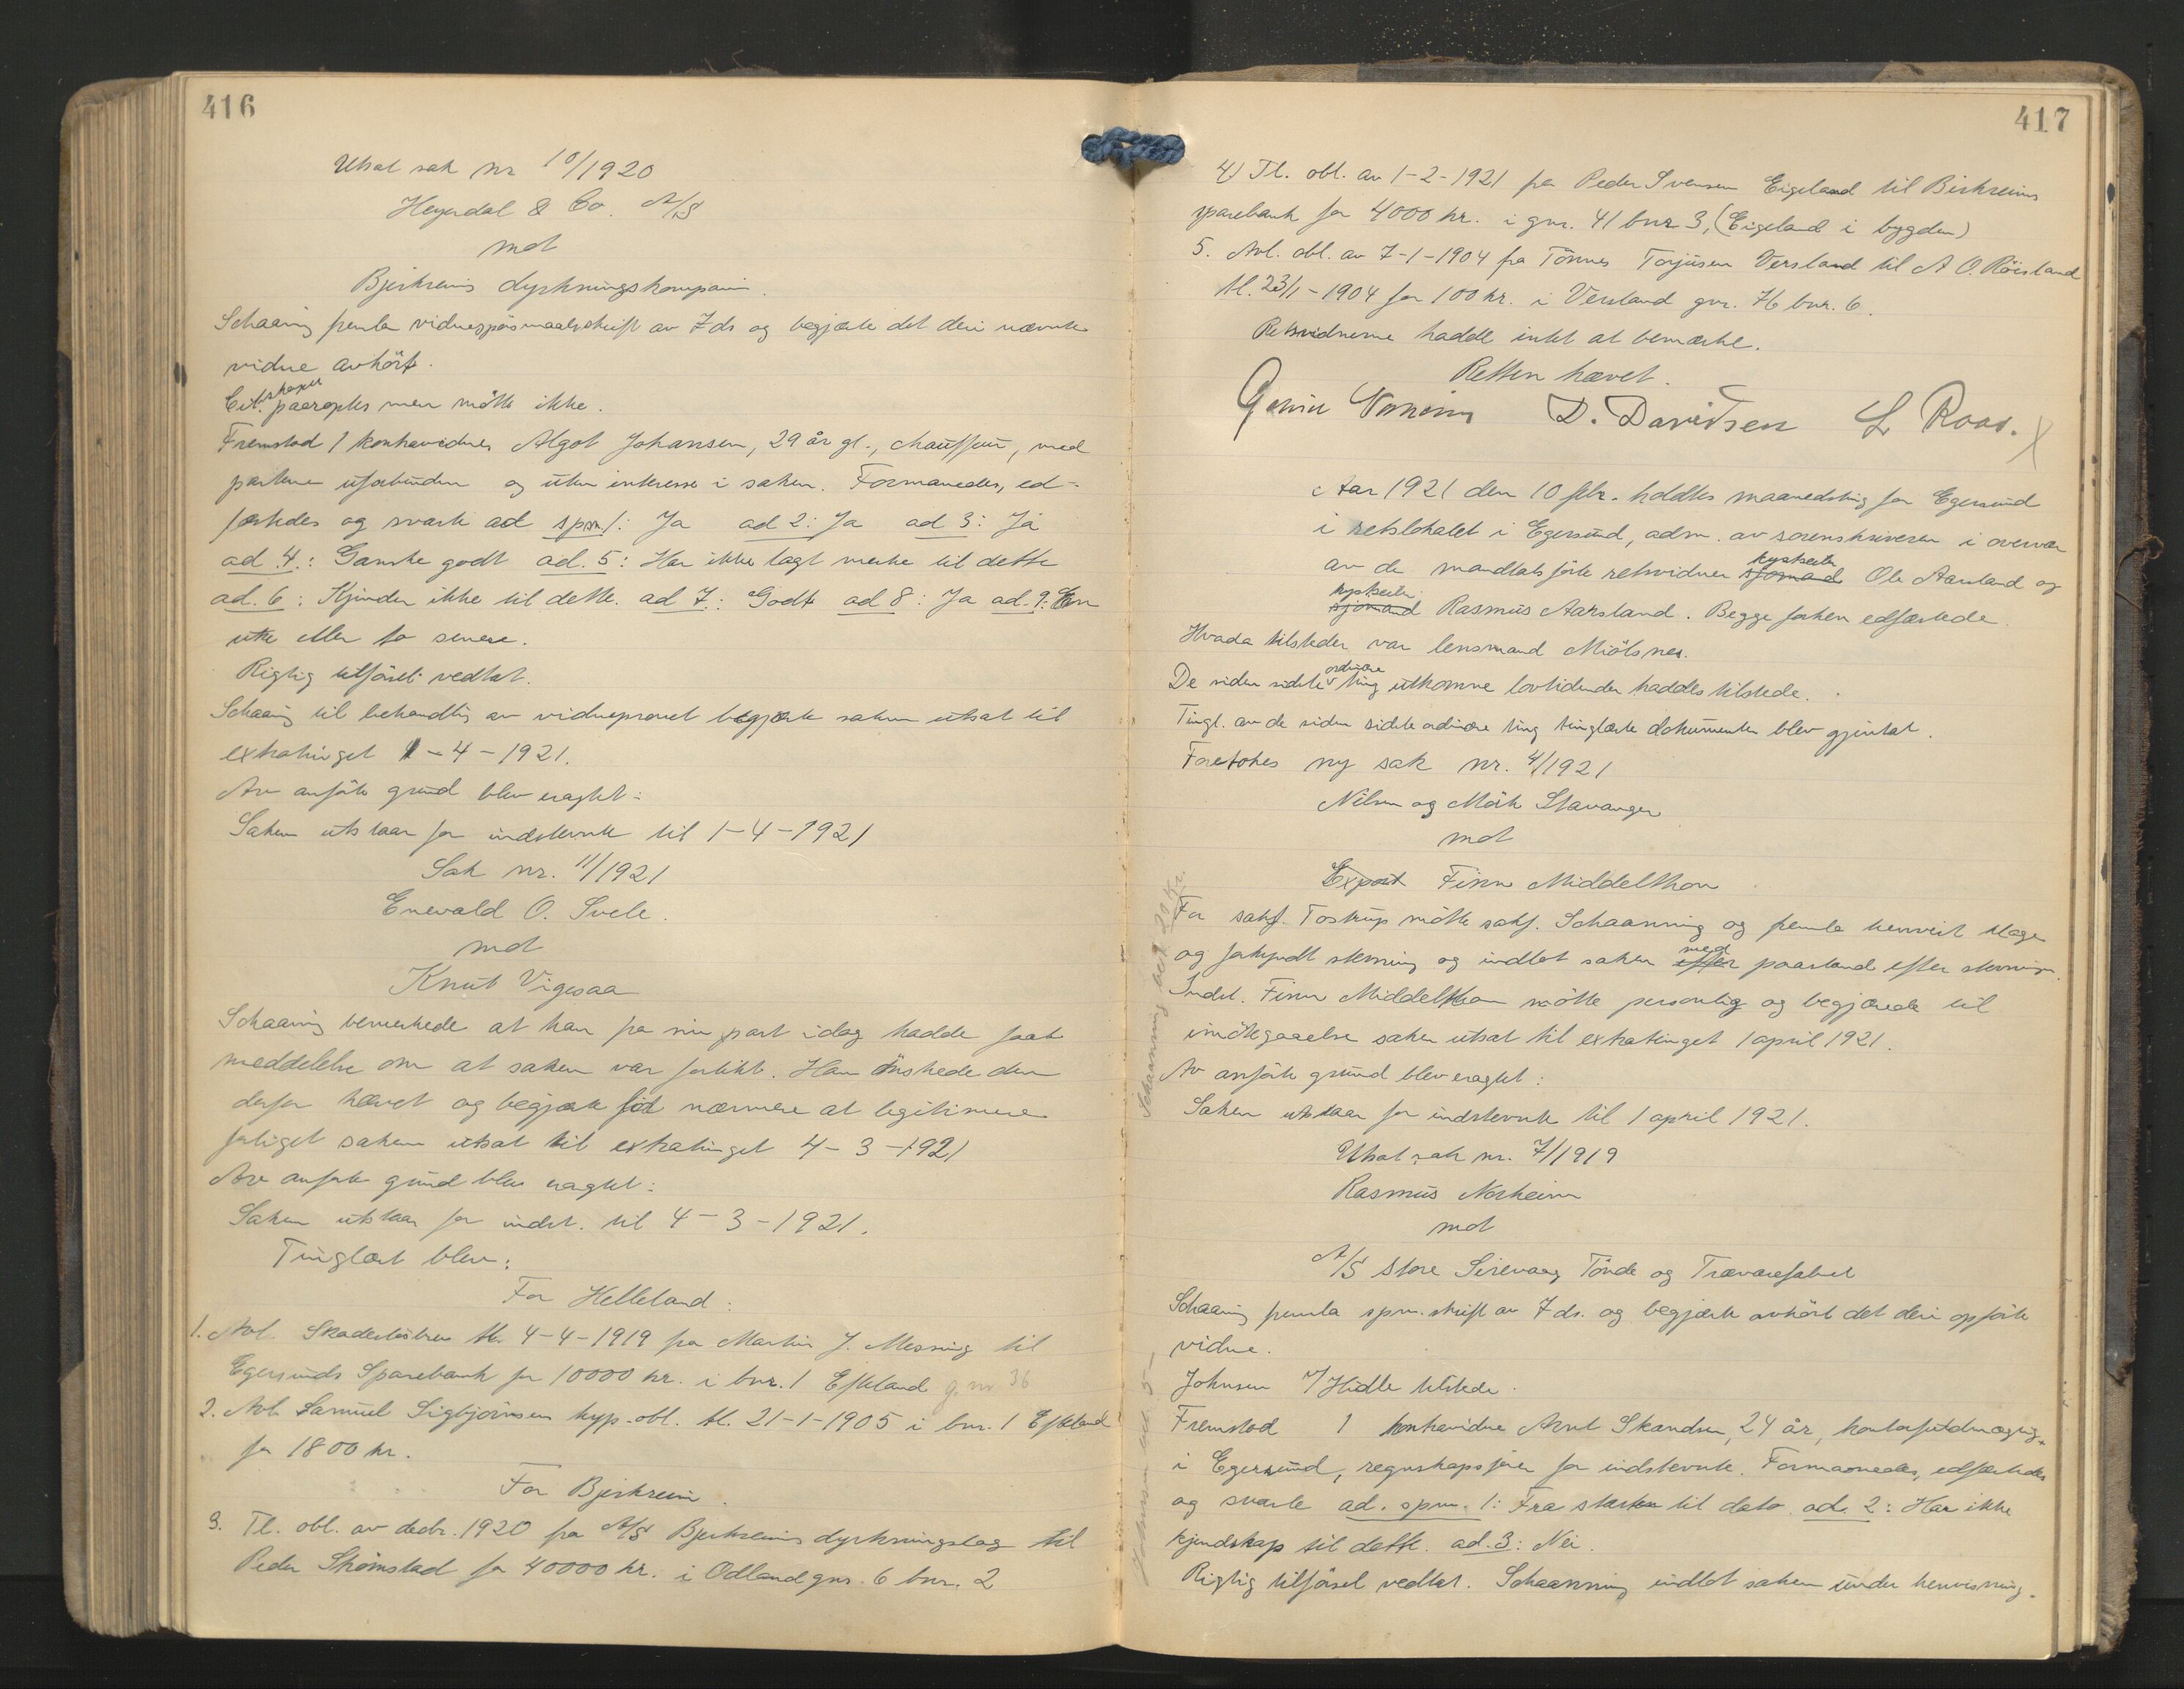 416
Utsat sak nr 10/1920
Heyerdal & Co. A/S
mot
Bjerkreims dyrkningskompani.
Schaaning femla vidnespörsmaalsskrift av 7 ds og begjærte det deri nævnte
vidne avhört.
Citskaper paaroptes men mötte ikke.
Fremstod 1 kontravidnes Algot Johansen, 29 år gl., chauffeur, med
parterne uforbunden og uten interesse i saken. Formanedes, ed-
færtedes og svarte ad spm 1: Ja ad 2: Ja ad 3: Ja
ad 4.: Ganske godt ad. 5: Har ikke lagt merke til dette
ad. 6: Kjender ikke til dette. ad 7: Godt ad 8: Ja ad. 9: En
uke eller to senere.
Rigtig tilförsel vedtat.
Schaaning til behandling av vidneprovet begjærte saken utsat til
extratinget 1-4-1921.
Av anförte grund blev eragtet:
Saken utstaar for indstevnte til 1-4-1921
Sak nr. 11/1921
Enevald O. Svele.
mot
Knut Vigesaa
Schaaning bemerkede at han fra sin part idag hadde faat
meddelelse om at saken var forlikt. Han önskede den
derfor hævet og begjærte for nærmere at legitimere
forliget saken utsat til extratinget 4-3-1921
Av anförte grund blev eragtet:
Saken utstaar for indst. til 4-3-1921.
Tinglæst blev:
For Helleland:
1. Avl. Skadeslösbrev tl. 4-4-1919 fra Martin J. Mesning til
Egersunds Sparebank for 10000 kr. i bnr. 1 Efteland g.nr 36
2. Avl. Samuel Sigbjörnsens hyp.obl. tl. 21-1-1905 i bnr. 1 Efteland
for 1800 kr.
For Bjerkreim.
3. Tl. obl. av decbr. 1920 fra A/S Bjerkreims dyrkningslag til
Peder Strömstad for 40000 kr. i Odland gnr. 6 bnr. 2
417
4) Tl. obl. av 1-2-1921 fra Peder Svensen Eigeland til Birkreims
sparebank for 4000 kr. i gnr. 41 bnr 3, (Eigeland i bygden)
5. Avl. obl. av 7-1-1904 fra Tönnes Torjusen Versland til A O. Röisland
tl. 23/1-1904 for 100 kr. i Versland gnr. 76 bnr. 6.
Retsvidnerne hadde intet at bemærke.
Retten hævet.
D. Davidsen L Roos.
Aar 1921 den 10 febr. holdtes maanedsting for Egersund
i retslokalet i Egersund, adm. av sorenskriveren i overvær
av de mandtalsförte retsvidner sjömand kystseiler Ole Aarstand og
sjömand kystseiler Rasmus Aarsland. Begge forhen edfæstede.
Hvada tilsteder var lensmand Miölsnes.
De siden sidste ordinære ting utkomne lovtidender haddes tilstede.
Tingl. av de siden sidste ordinære ting tinglæste dokumenter blev gjentat.
Foretokes ny sak nr. 4/1921
Nilsen og Mörk Stavanger
mot
Export Finn Middelthon
For sakf. Tostrup mötte sakf. Schaanning og femla henvist klage
og forkyndt stevning og indlot saken efter med paastand efter stevningen.
Indst. Finn Middelthon mötte personlig og begjærede til
imötegaaelse saken utsat til extratinget 1 april 1921.
Av anförte grund blev eragtet:
Saken utstaar for indstevnte til 1 april 1921.
Utsat sak nr. 7/1919
Rasmus Norheim
mot
A/S Store Sirevaag Tönde og Trævarefabrik
Schaaning femla spm. skrift av 7 ds. og begjærte avhört det deri opförte
vidne.
Johnsen v/Hidle tilstede.
Fremstod 1 kontravidne Arnt Skandsen, 24 år, kontorfuldmægtig
i Egersund, regnskapsförer for indstevnte. Formanedes, edfæstedes
og svarte ad. spm. 1: Fra starten til dato. ad. 2: Har ikke
kjendskap til dette. ad. 3: Nei.
Rigtig tilförsel vedtat. Schaanning indlot saken under henvisning